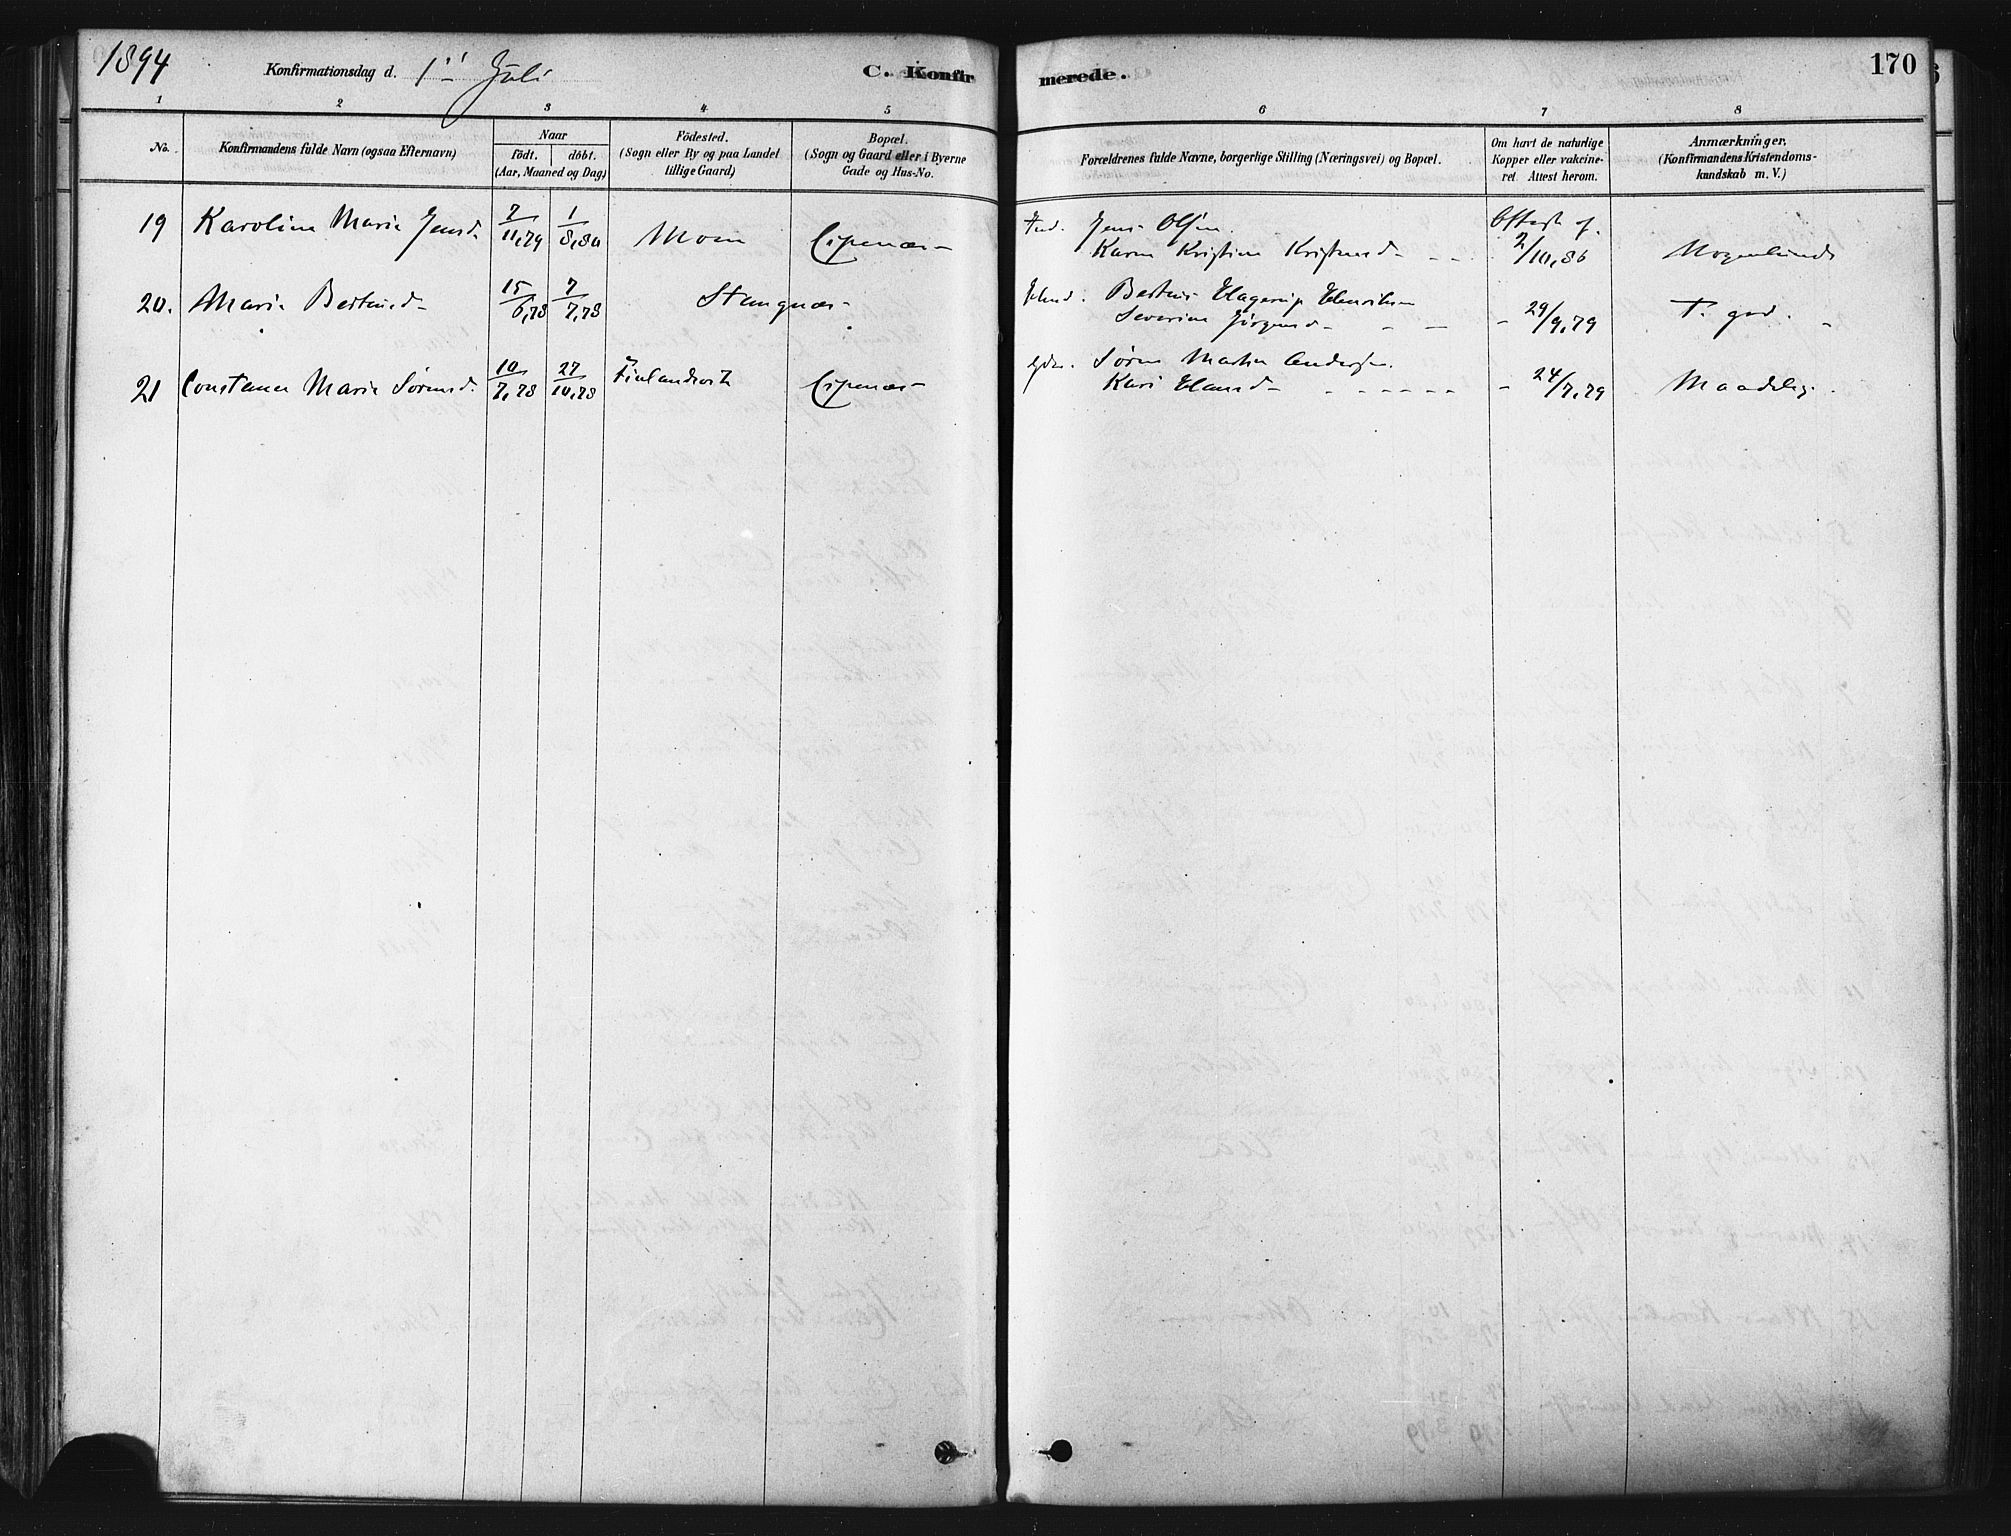 1894 Konfirmationsdag d. 1' Juli C. Konfirmerede. 170
1 2 3 4 5 6 7 8
No. Konfirmandens fulde Navn (ogsaa Efternavn) Naar födt. döbt. (Aar, Maaned og Dag) Födested. (Sogn eller By og paa Landet tillige Gaard) Bopæl. (Sogn og Gaard eller i Byerne Gade og Hus-No. Forældrenes fulde Navne, borgerlige Stilling (Næringsvei) og Bopæl. Om havt de naturlige Kopper eller vakcineret. Attest herom. Anmærkninger. (Konfirmandens Kristendomskundskab m. V.)
19 Karoline Marie Jensd. 7/11,79 1/8,80 Moen Ind. Jens Olsen. Attest af.
Karen Kristine 2/10,86
20. Marie 15/6,78 7/7,78 Stangnæs Hagerup Henriksen
Severine - - - 29/9,79 T. god.
21 Constance Marie Sørensd. 10/7,78 27/10,78 Søren Martin Andersen.
Kari Hansd - - - - - - - 24/7,79 Maadelig.